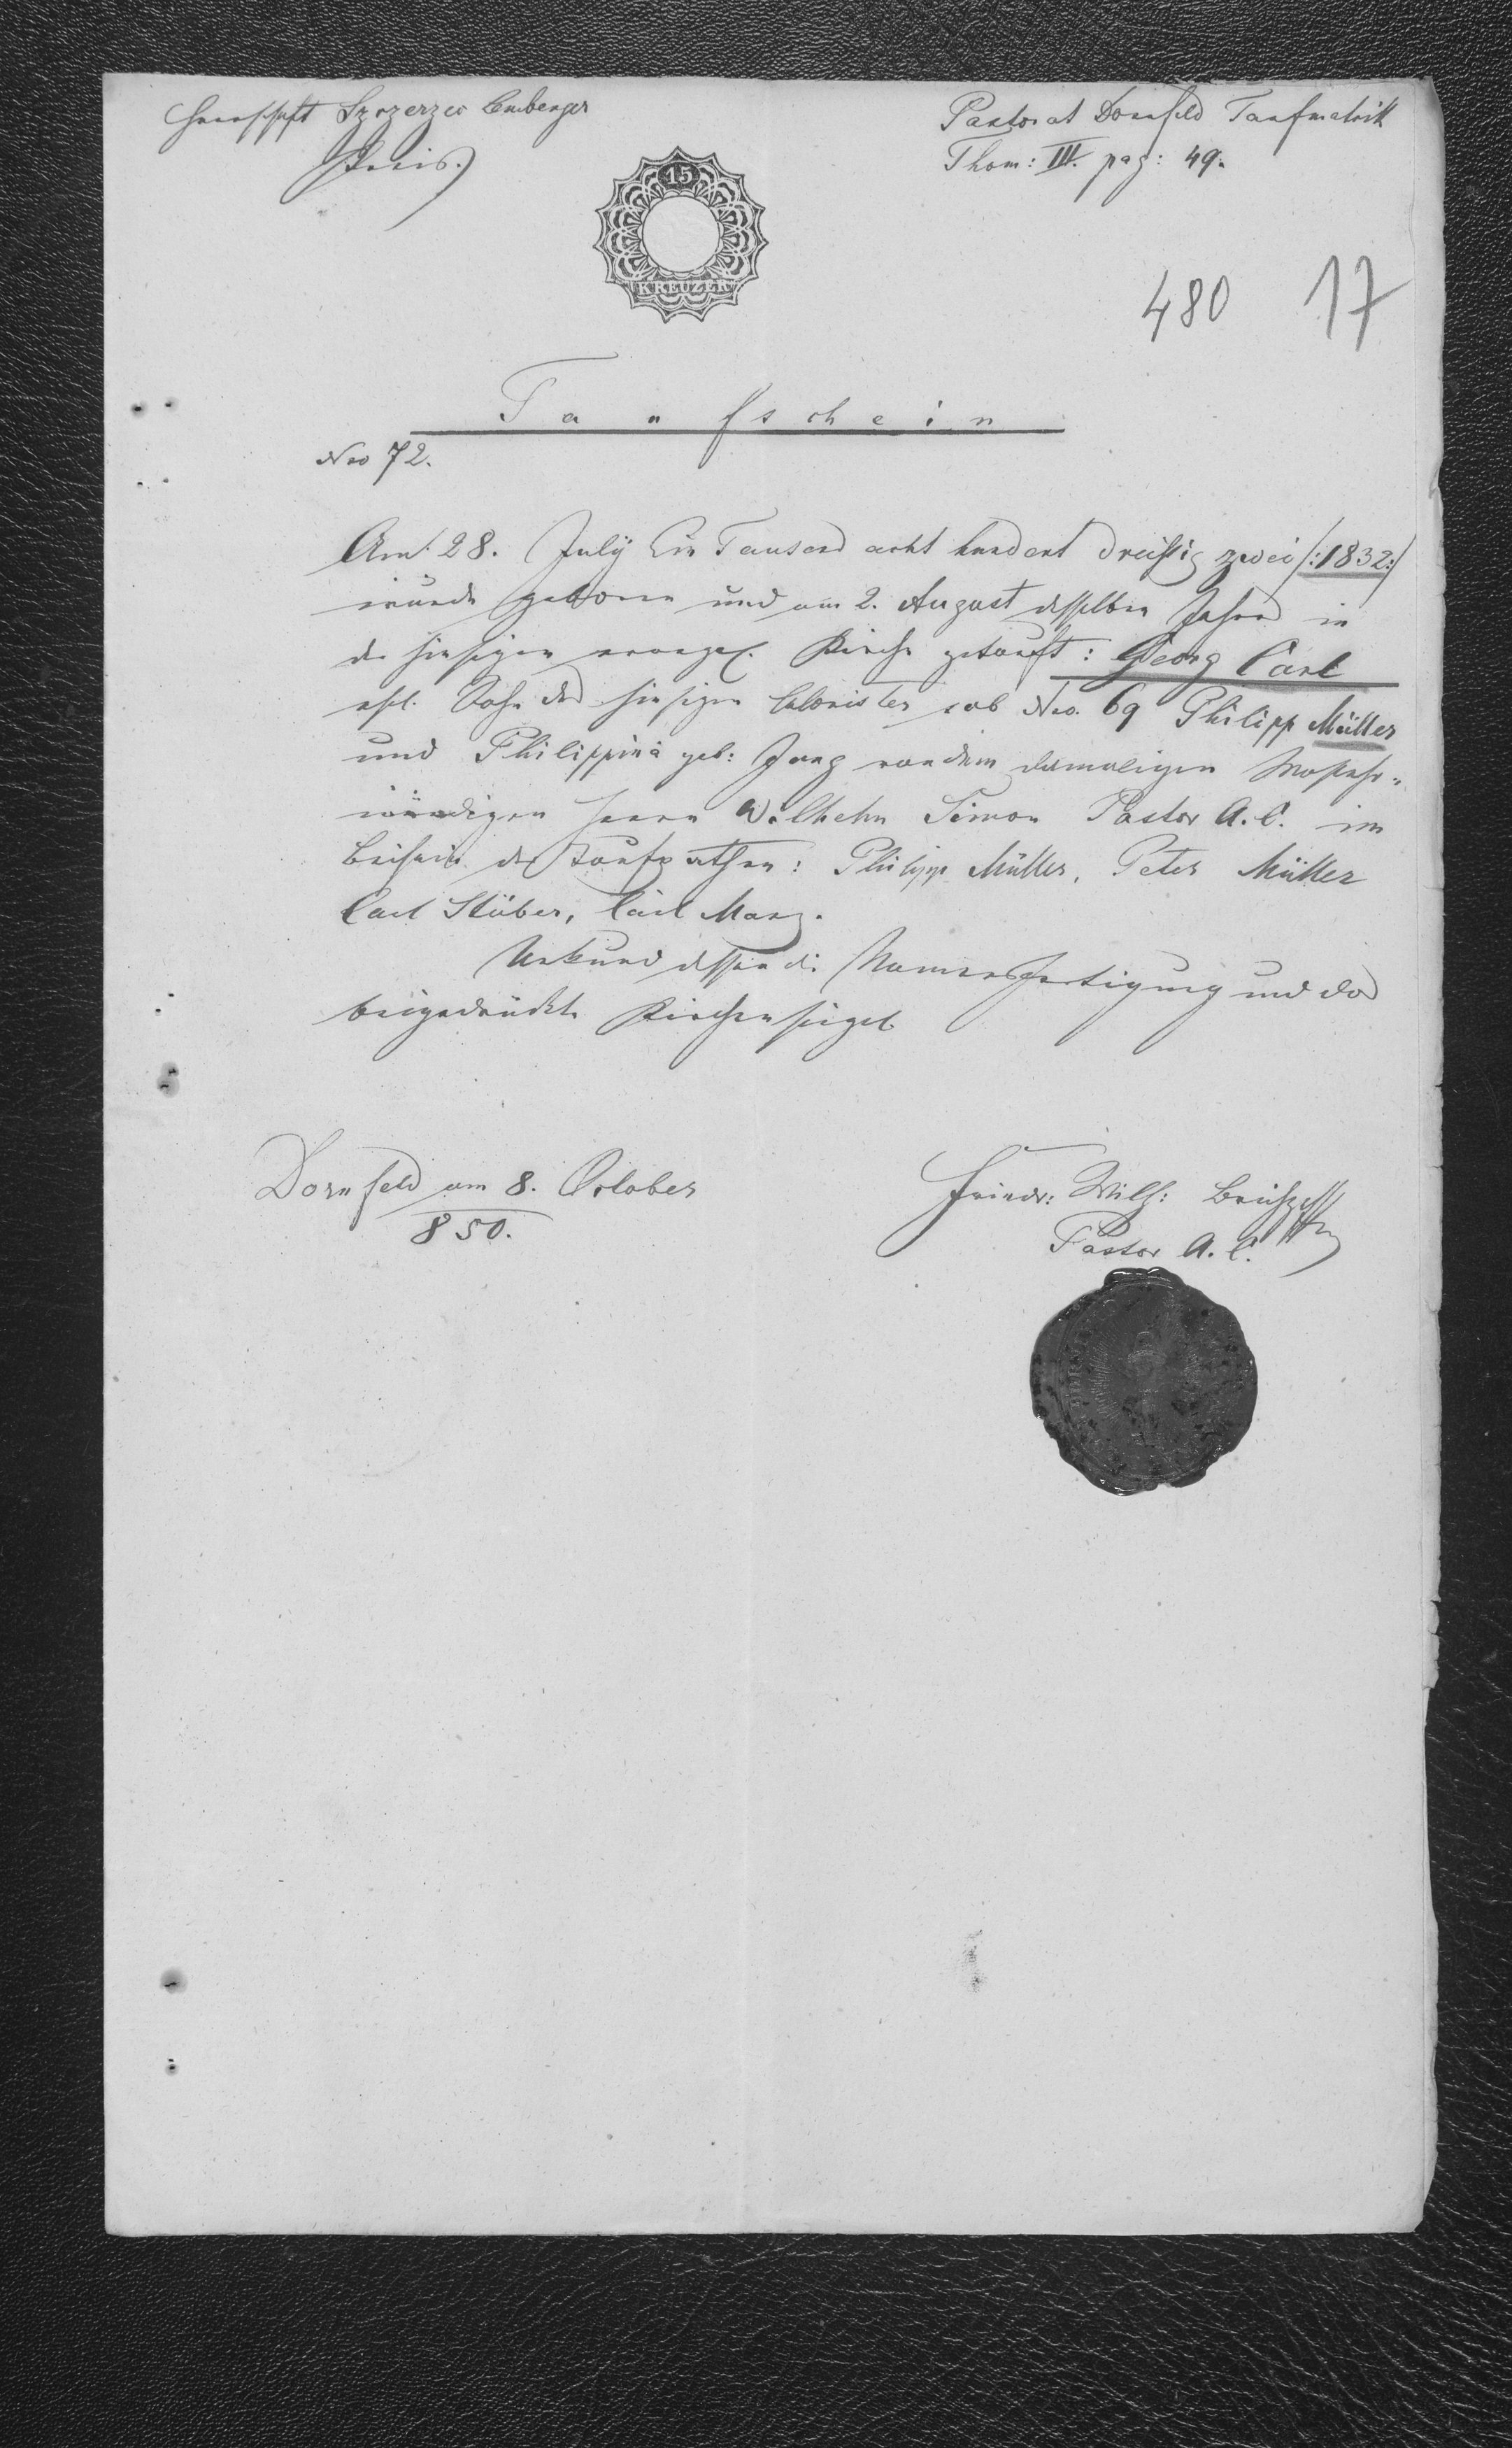 Herrschaft Szczerzec Lemberger
Kreis.)
Pastorat Dornfeld Taufmatrik
Thom: III. pag: 49.
15
KREUZER
480 17
Taufschein
Nro 72.
Am 28. July Ein Tausend acht hundert dreißig zwei /:1832:/
wurde geboren und am 2. August desselben Jahres in
der hiesigen evangel. Kirche getauft: Georg Carl
ehl. Sohn des hiesigen Colonisten sub Nro. 69 Philipp Müller
und Philippina geb: Jung von dem damaligen Wohlehr-
würdigen Herrn Wilhelm Simon Pastor A. C. im
Beisein der Taufpathen: Philipp Müller, Peter Müller
Carl Stüber, Carl Manz.
Urkund dessen die Namensfertigung und das
beigedrückte Kirchensiegel
Dornfeld am 8. October
850.
Friedr: Wilh:
Pastor A. C.